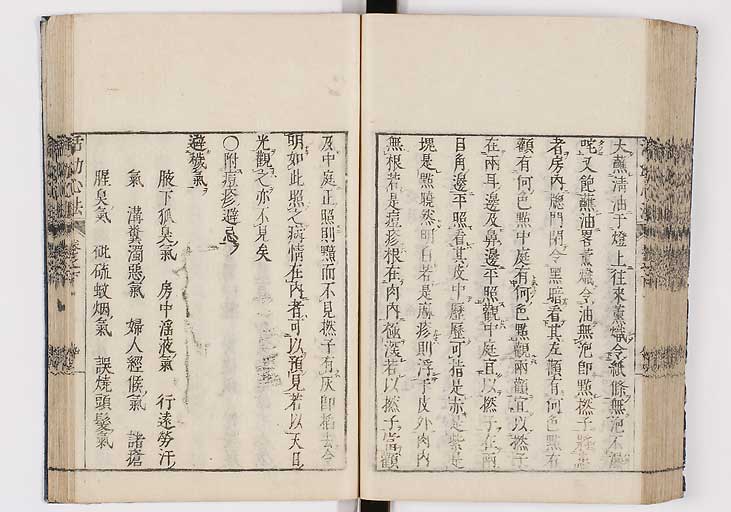 大蘸清油于燈上往來熏熾令紙條無泡不
咤又飽蘸油畧熏熾令油無泡即點撚子
者房內牕門閉令黑暗看其左顴有何色點右
顴有何色點中庭有何色點觀兩顴宜以撚子
在兩耳邊及鼻邊平照觀中庭宜以撚子在兩
目角邊平照看其皮中歷歷可指是赤是紫是
塊是點曉然明白若是麻疹則浮于皮外肉內
無根若是痘疹根在肉內極深若以撚子當顴
及中庭正照則黯而不見撚子有灰即掐去令
明如此照之病情在內者可以預見若以天日
光觀之亦不見矣
〇附痘疹避忌
避穢氣
腋下狐臭氣 房中淫液氣 行遠勞汗
氣 溝糞濁惡氣 婦人經候氣 諸瘡
腥臭氣 砒硫蚊烟氣 誤燒頭髮氣
活幼心法